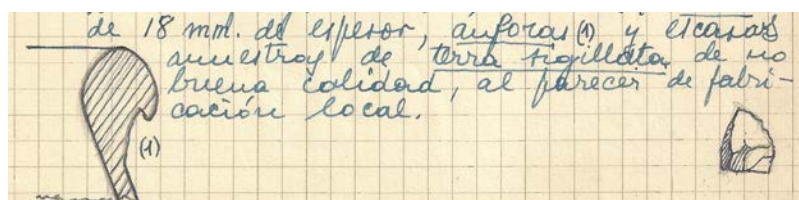 de 18 mm. de espesor, ánforas (1) y escasas
muestras de terra sigillata de no
buena calidad, al parecer de fabri-
cación local.
(1)